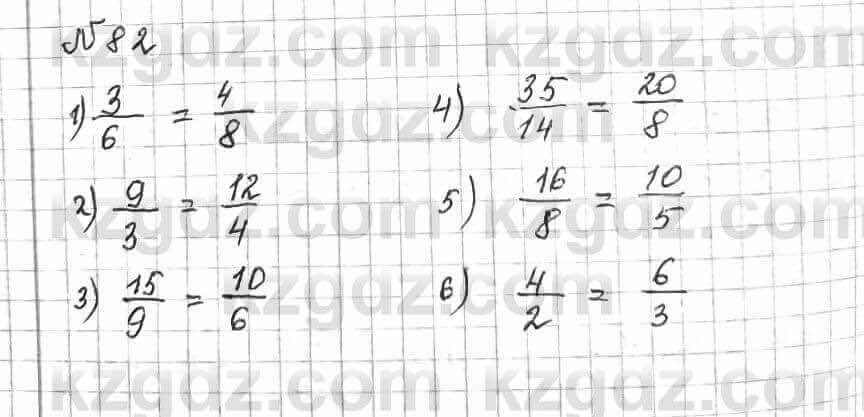 № 82
1) 3/6 = 4/8
2) 9/3 = 12/4
3) 15/9 = 10/6
4) 35/14 = 20/8
5) 16/8 = 10/5
6) 4/2 = 6/3
kzgdz.com kzgdz.com
kzgdz.com kzgdz.com
kzgdz.com kzgdz.com
kzgdz.com kzgdz.com
kzgdz.com kzgdz.com